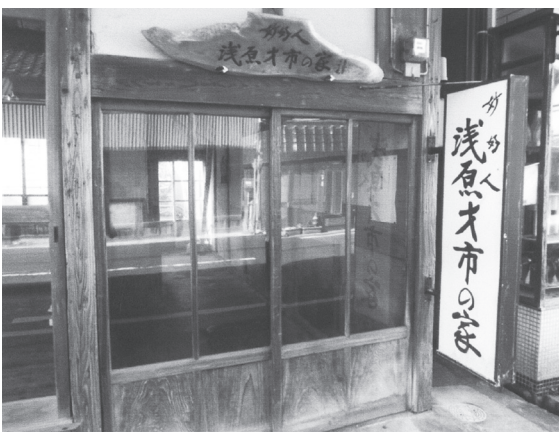 妙好人
浅原才市の家
妙好人
浅原才市の家